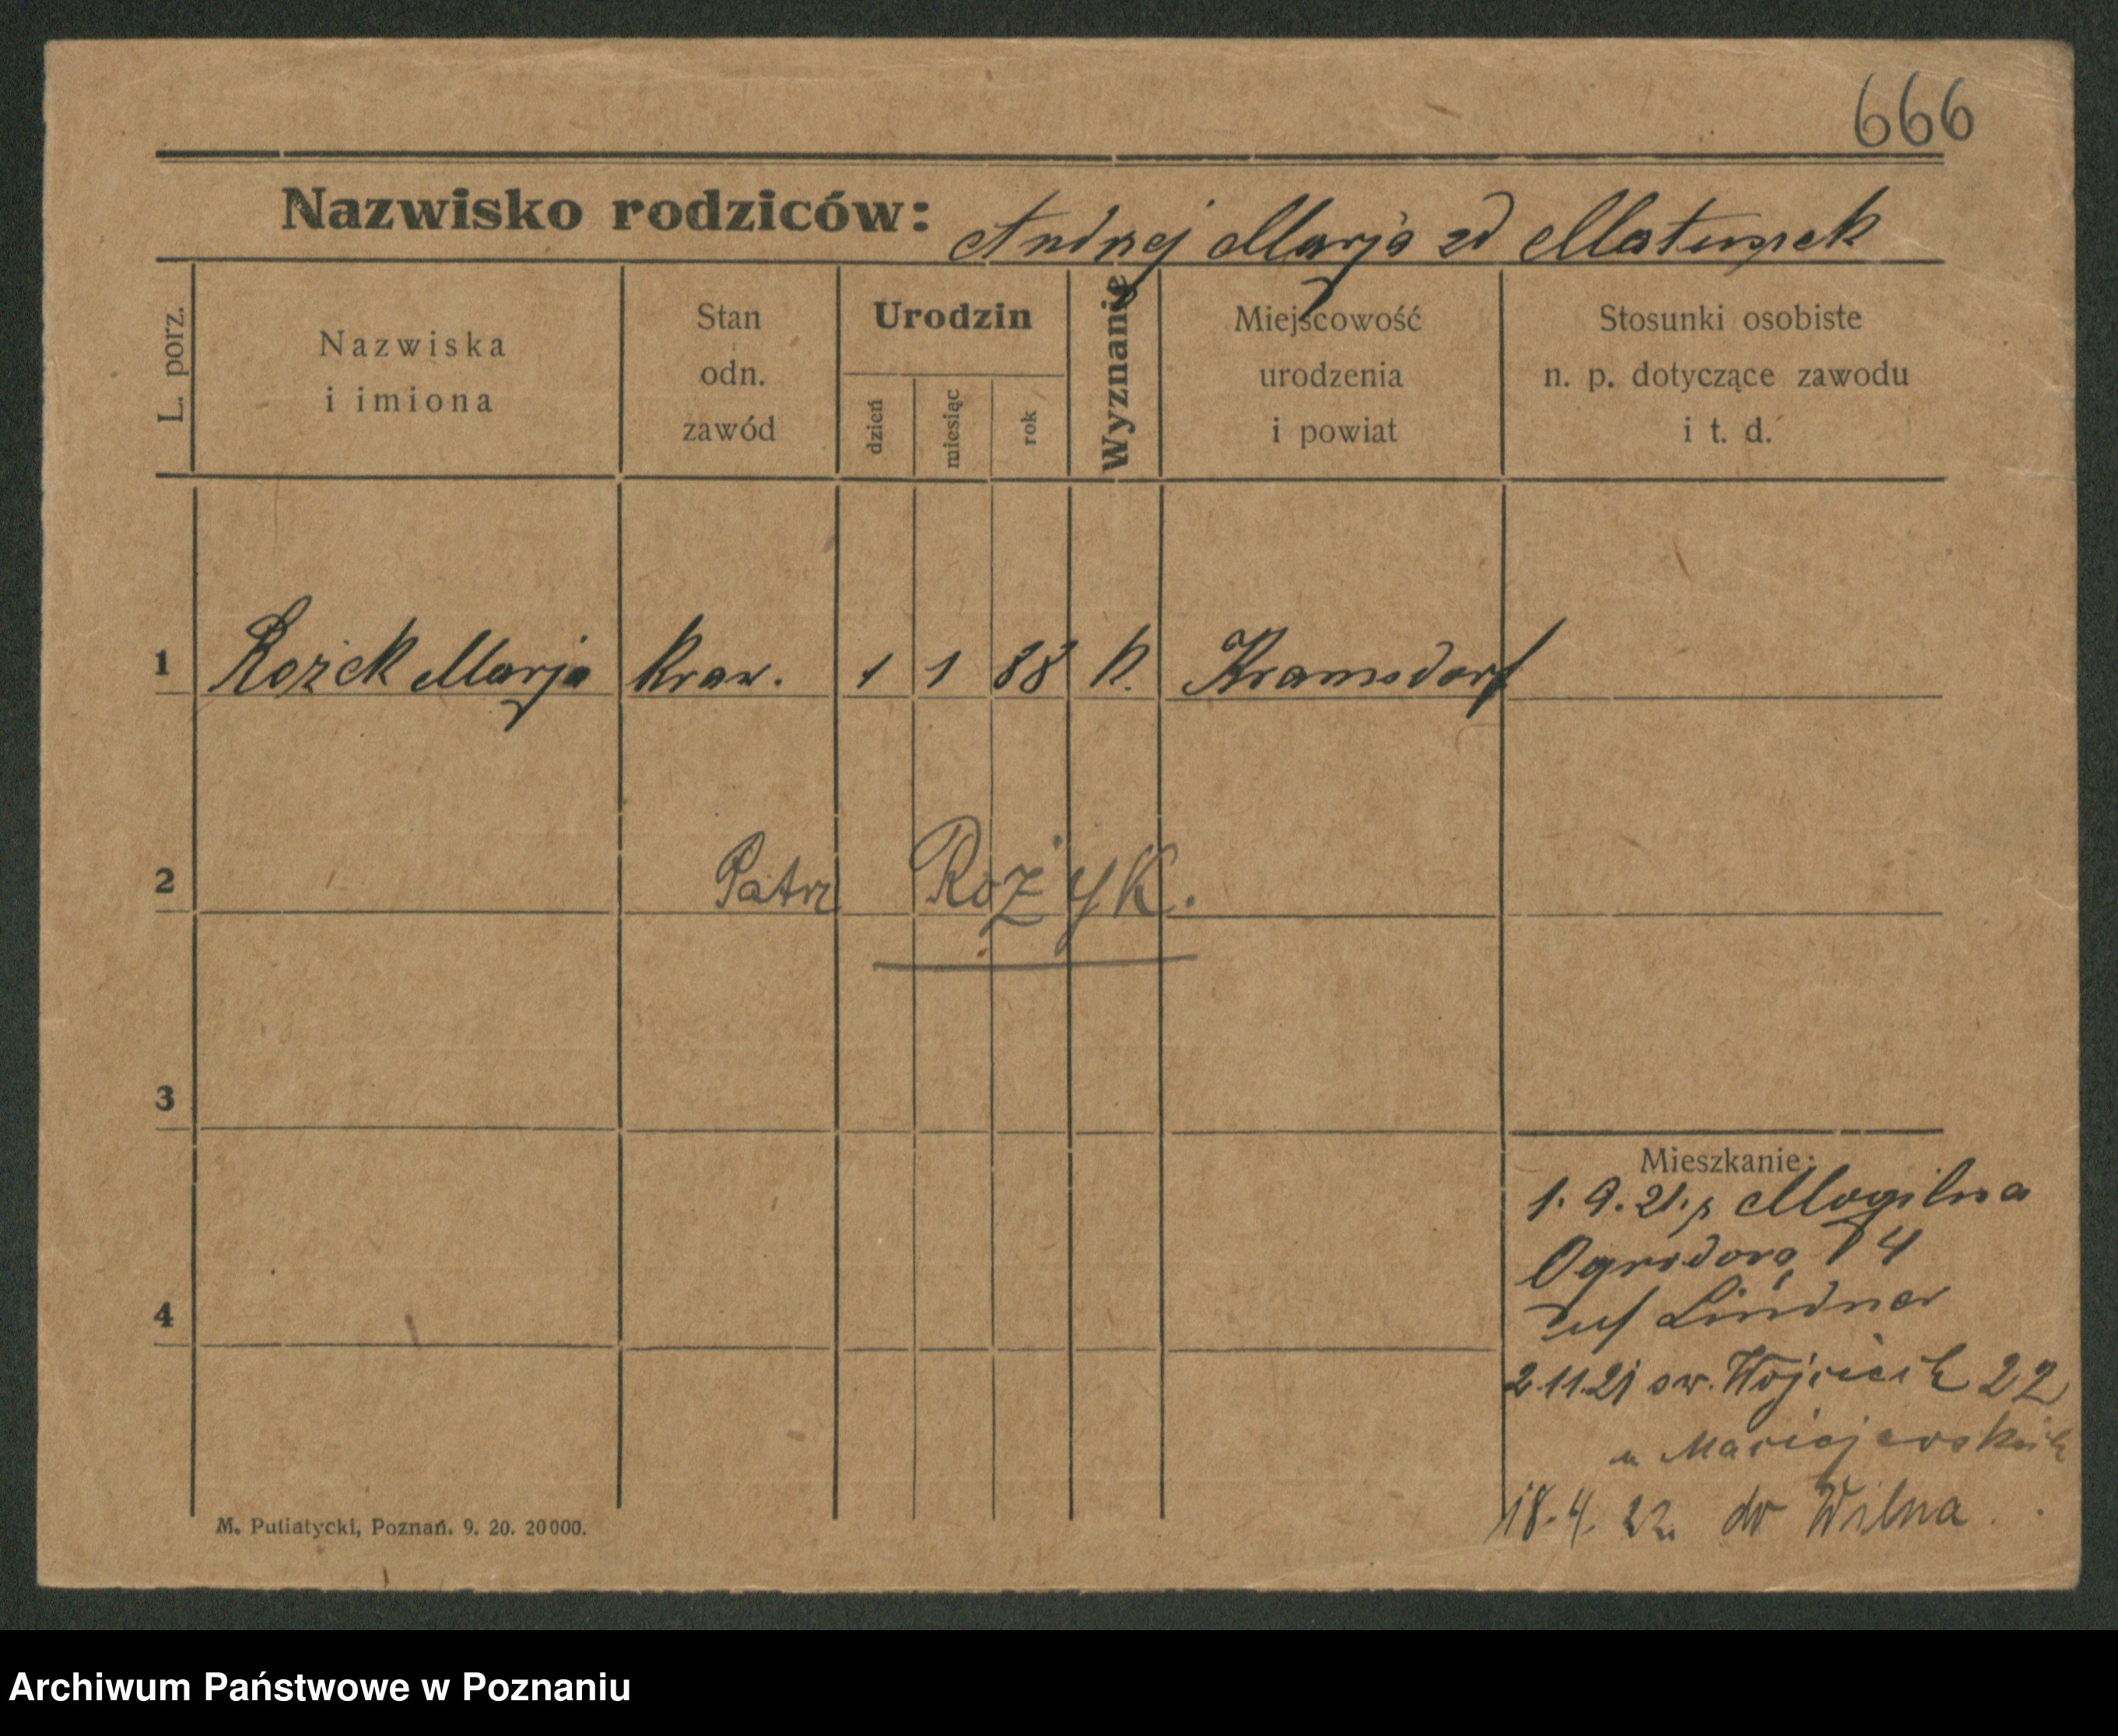 666
Nazwisko rodziców: Andrzej Marja zd Matuszek
L. porz.
Nazwiska
i imiona
Stan
odn.
zawód
Urodzin
dzień
miesiąc
rok
Wyznanie
Miejscowość
urodzenia
i powiat
Stosunki osobiste
n. p. dotyczące zawodu
i t. d.
1 Rożek Marja kraw. 1 1 88 k. Kramsdorf
2 Patrz Rożyk.
3
4
Mieszkanie:
1. 9. 21. z Mogilna
Ogrodowa 14
Lindner
2.11.21 św. Wojciech 22
u Maciejewskich
18. 4. 22. do Wilna.
M. Putiatycki, Poznań. 9. 20. 20000.
Archiwum Państwowe w Poznaniu